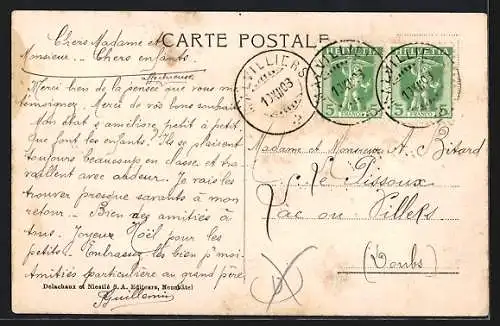 CARTE POSTALE
Chers Madame et
Monsieur. — Chers enfants.
affectueuse
Merci bien de la pensée que vous me
témoignez. Merci de vos bons souhaits
Mon état s'améliore petit à petit.
Que font les enfants? Ils se plaisent
toujours beaucoup en classe et
travaillent avec ardeur. Je vais les
trouver presque savants à mon
retour. — Bien des amitiés à
tous. Joyeux Noël pour les
petits. Embrassez les bien p' moi.
Amitiés particulière au grand père
Guillemin
Delachaux et Niestlé S. A. Editeurs, Neuchâtel
VILLIERS
HELVETIA
5 FRANCO 5
HELVETIA
5 FRANCO 5
Madame et Monsieur A. Bitard
Le Pissoux
Lac ou Villers
(Doubs)